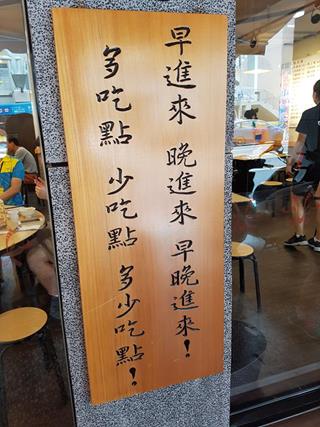 早進來 晚進來 早晚進來!
多吃點 少吃點 多少吃點!